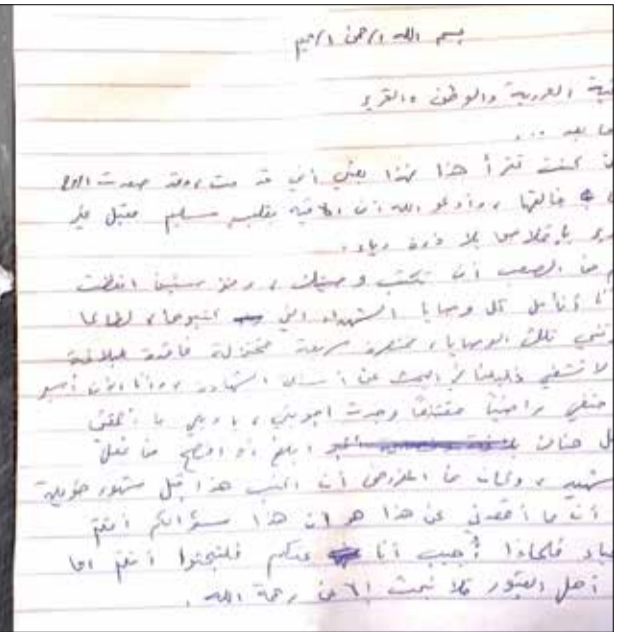 بسم الله الرحمن الرحيم
تحية العروبة والوطن والتحرير
أما بعد ...
إن كنت تقرأ هذا فهذا يعني أني قد مت، وقد صعدت الروح
خالقها، وأدعو الله أن ألاقيه بقلب سليم مقبل غير
بإخلاص بلا ذرة رياء.
كم من الصعب أن تكتب وصيتك، ومنذ سنين انقضت
أنا أتأمل كل وصايا الشهداء التي كتبوها، لطالما
تلك الوصايا، مختصرة سريعة مختزلة فاقدة للبلاغة
لا تشفي غليلنا في البحث عن أسئلة الشهادة. وأنا الآن أسير
حتفي راضياً مقتنعاً وجدت أجوبتي، يا ويلي ما أحمقني
هل هناك أبلغ أو أفصح من فعل
الشهيد، وكان من المفروض أن أكتب هذا قبل شهور طويلة
أن ما أقعدني عن هذا هو أن هذا سؤالكم أنتم
فلماذا أجيب أنا عنكم فلتبحثوا أنتم أما
أهل القبور فلا نبحث إلا عن رحمة الله.